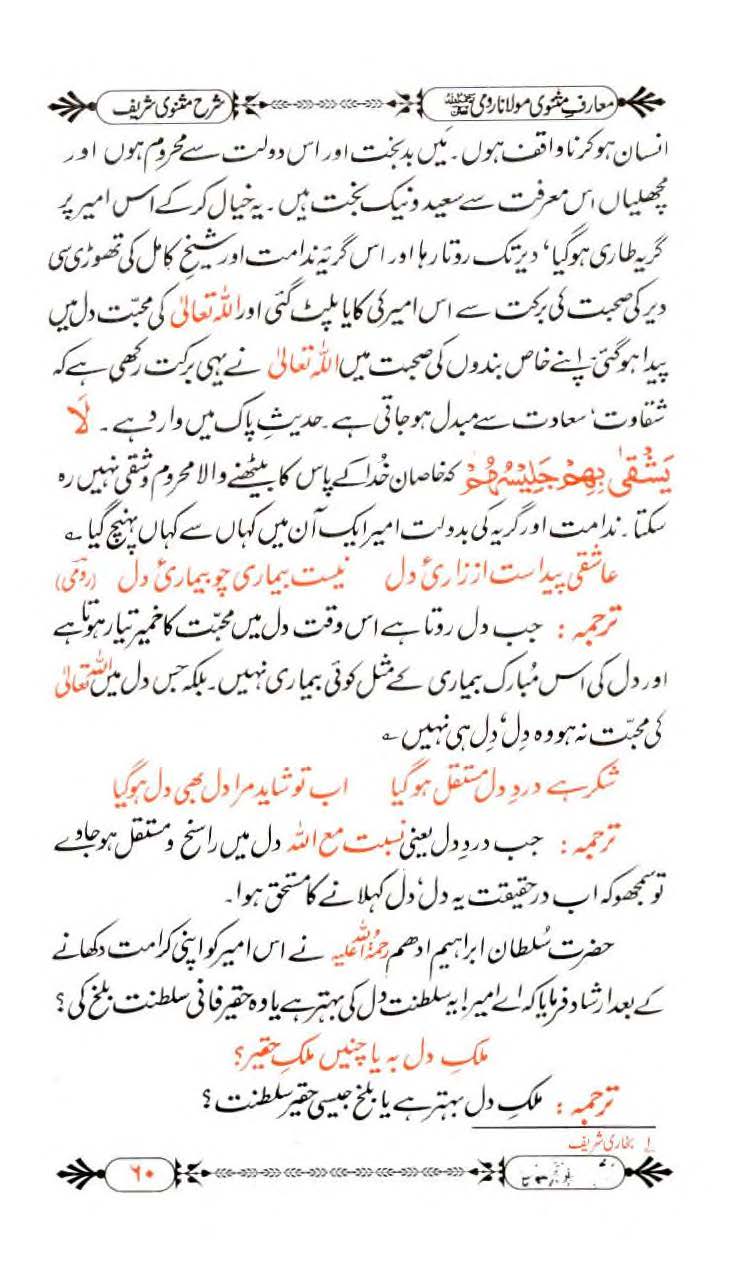 معارفِ مثنوی مولانا رومی رحمۃ اللہ علیہ
شرح مثنوی شریف
انسان ہو کر ناواقف ہوں۔ میں بدبخت اور اس دولت سے محروم ہوں اور
مچھلیاں اس معرفت سے سعید و نیک بخت ہیں۔ یہ خیال کر کے اس امیر پر
گریہ طاری ہو گیا، دیر تک روتا رہا اور اس گریۂ ندامت اور شیخِ کامل کی تھوڑی سی
دیر کی صحبت کی برکت سے اس امیر کی کایا پلٹ گئی اور اللہ تعالیٰ کی محبّت دل میں
پیدا ہو گئی۔ اپنے خاص بندوں کی صحبت میں اللہ تعالیٰ نے یہی برکت رکھی ہے کہ
شقاوت، سعادت سے مبدل ہو جاتی ہے۔ حدیثِ پاک میں وارد ہے۔ لَا
یَشْقٰی بِھِمْ جَلِیْسُھُمْ کہ خاصانِ خُدا کے پاس کا بیٹھنے والا محروم و شقی نہیں رہ
سکتا۔ ندامت اور گریہ کی بدولت امیر ایک آن میں کہاں سے کہاں پہنچ گیا ؎
عاشقی پیدا ست از زاریٔ دل نیست بیماری چو بیماریٔ دل (رومی)
ترجمہ : جب دل روتا ہے اس وقت دل میں محبّت کا خمیر تیار ہوتا ہے
اور دل کی اس مُبارک بیماری کے مثل کوئی بیماری نہیں۔ بلکہ جس دل میں اللہ تعالیٰ
کی محبّت نہ ہو وہ دِل، دِل ہی نہیں ؎
شکر ہے دردِ دل مستقل ہو گیا اب تو شاید مرا دل بھی دل ہو گیا
ترجمہ : جب دردِ دل یعنی نسبت مع اللہ دل میں راسخ و مستقل ہو جاوے
تو سمجھو کہ اب درحقیقت یہ دل، دل کہلانے کا مستحق ہوا۔
حضرت سُلطان ابراہیم ادھم رحمۃ اللہ علیہ نے اس امیر کو اپنی کرامت دکھانے
کے بعد ارشاد فرمایا کہ اے امیر! یہ سلطنت دل کی بہتر ہے یا وہ حقیر فانی سلطنت بلخ کی؟
ملکِ دل بہ یا چنیں ملکِ حقیر؟
ترجمہ : ملکِ دل بہتر ہے یا بلخ جیسی حقیر سلطنت؟
۱ بخاری شریف
۶۰